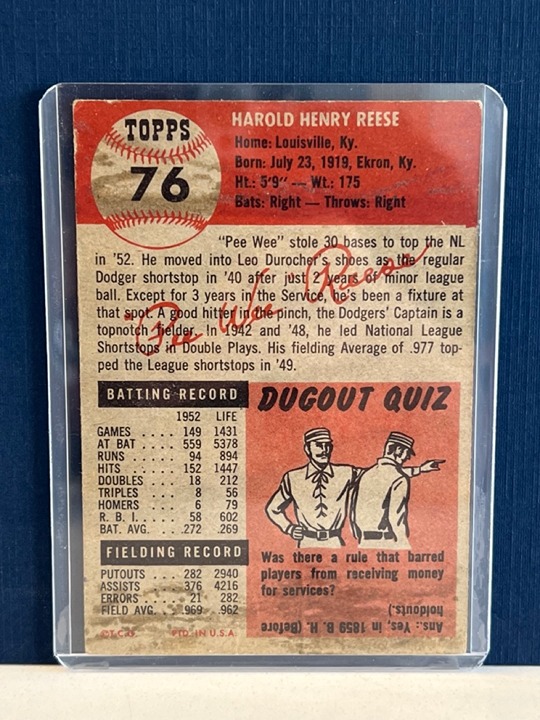 TOPPS
76
HAROLD HENRY REESE
Home: Louisville, Ky.
Born: July 23, 1919, Ekron, Ky.
Ht.: 5'9" — Wt.: 175
Bats: Right — Throws: Right
"Pee Wee" stole 30 bases to top the NL
in '52. He moved into Leo Durocher's shoes as the regular
Dodger shortstop in '40 after just 2 years of minor league
ball. Except for 3 years in the Service, he's been a fixture at
that spot. A good hitter in the pinch, the Dodgers' Captain is a
topnotch fielder. In 1942 and '48, he led National League
Shortstops in Double Plays. His fielding Average of .977 top-
ped the League shortstops in '49.
"Pee Wee" Reese
BATTING RECORD
1952 LIFE
GAMES .... 149 1431
AT BAT .... 559 5378
RUNS .... 94 894
HITS .... 152 1447
DOUBLES .. 18 212
TRIPLES ... 8 56
HOMERS .. 6 79
R. B. I. .... 58 602
BAT. AVG. .. .272 .269
FIELDING RECORD
PUTOUTS ... 282 2940
ASSISTS .... 376 4216
ERRORS .... 21 282
FIELD AVG. .. .969 .962
©T.C.G. PTD. IN U.S.A.
DUGOUT QUIZ
Was there a rule that barred
players from receiving money
for services?
Ans.: Yes, in 1859 B. H. (Before
holdouts.)